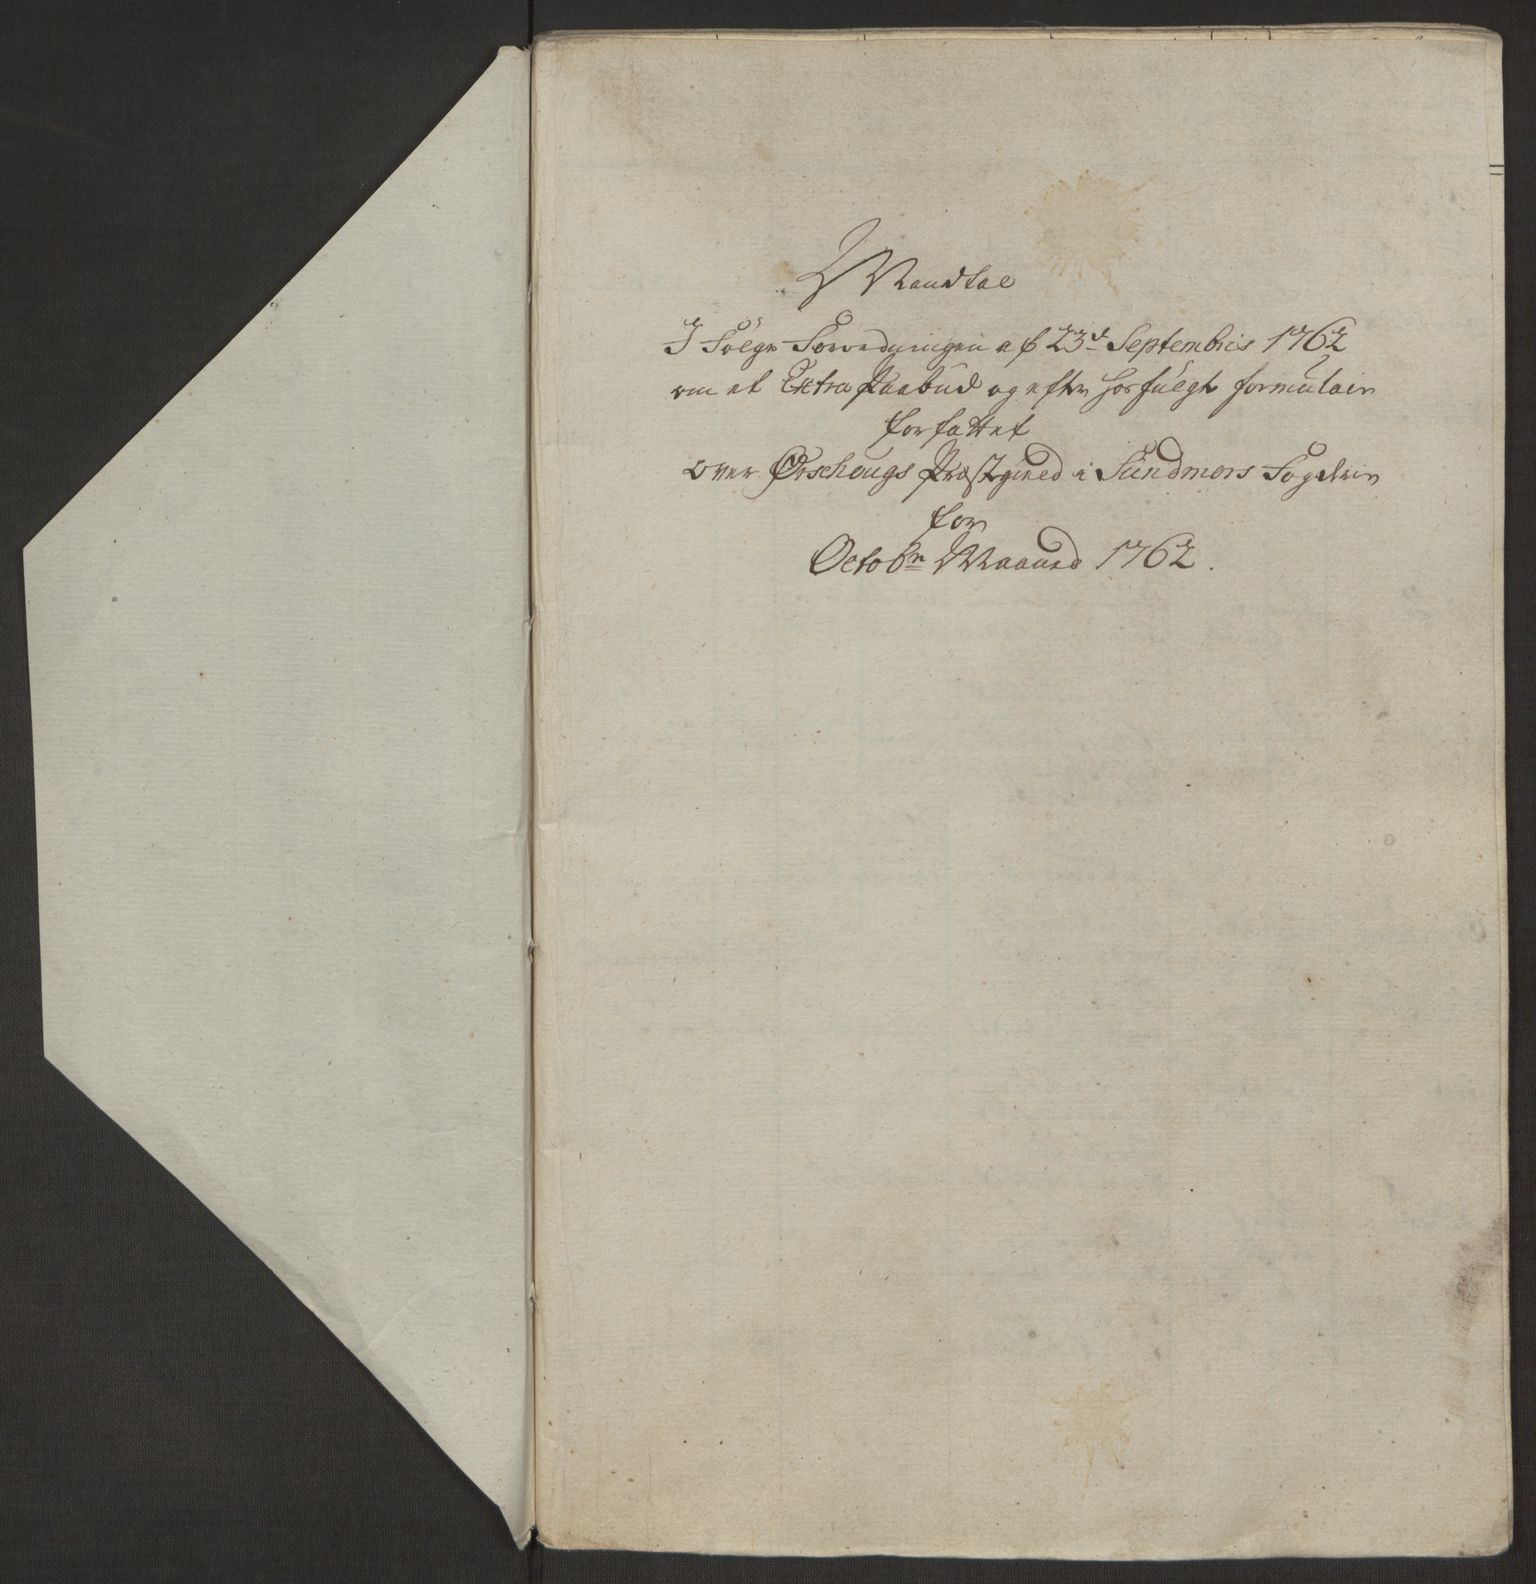 Mandtal
I Følge Forordningen af 23d Septembris 1762
om et Extra Paabud og efter hosfulgte formulair
forfattet
over Ørschougs Præstegield i Sundmørs Fogderie
for
Octobr Maaned 1762.